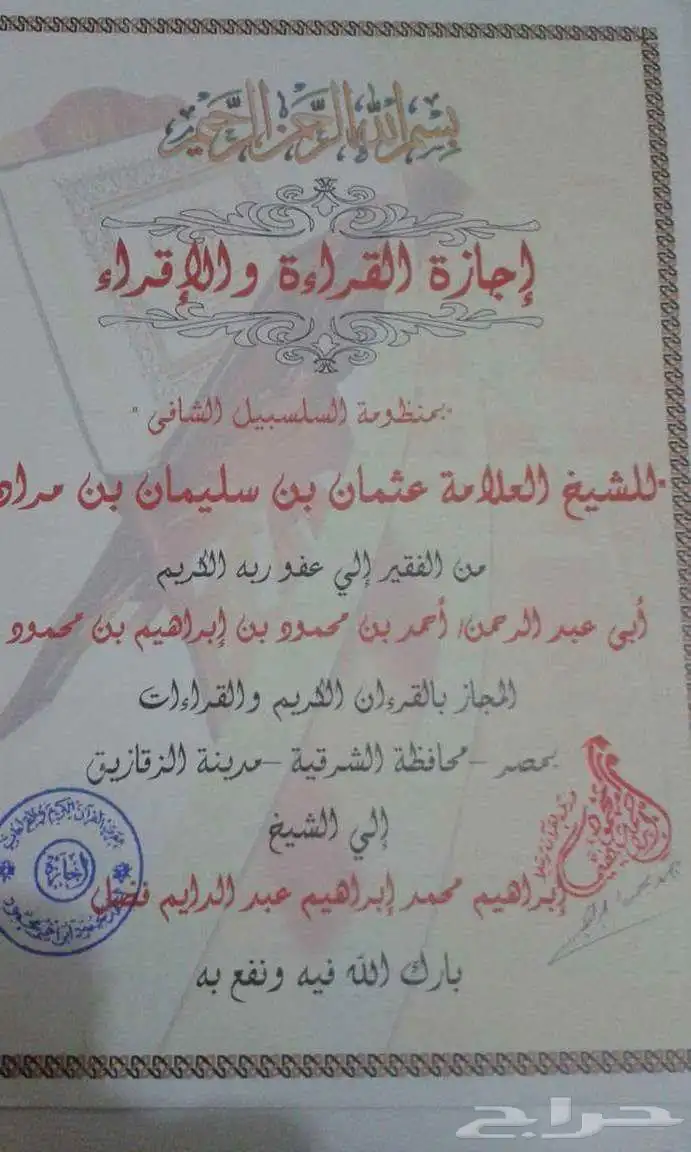 بسم الله الرحمن الرحيم
إجازة القراءة والإقراء
"بمنظومة السلسبيل الشافى"
"للشيخ العلامة عثمان بن سليمان بن مراد
من الفقير إلي عفو ربه الكريم
أبى عبد الرحمن/ أحمد بن محمود بن إبراهيم بن محمود
المجاز بالقرءان الكريم والقراءات
بمصر -محافظة الشرقية -مدينة الزقازيق
إلي الشيخ
إبراهيم محمد إبراهيم عبد الدايم فضل
بارك الله فيه ونفع به
إجازة
حراج